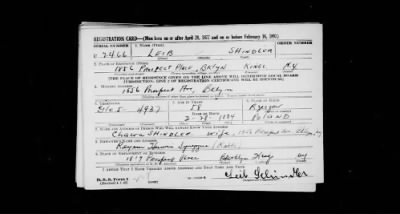 REGISTRATION CARD—(Men born on or after April 28, 1877 and on or before February 16, 1897)
SERIAL NUMBER 1. NAME (Print)
U 2466 LEIB SHINDLER
2. PLACE OF RESIDENCE (Print)
1856 Prospect Place, BKLYN KINGS N.Y
[THE PLACE OF RESIDENCE GIVEN ON THE LINE ABOVE WILL DETERMINE LOCAL BOARD
JURISDICTION; LINE 2 OF REGISTRATION CERTIFICATE WILL BE IDENTICAL]
3. MAILING ADDRESS
1856 Prospect Bklyn
4. TELEPHONE 5. AGE IN YEARS 6. PLACE OF BIRTH
4937 58
DATE OF BIRTH
1884 POLAND
7. NAME AND ADDRESS OF PERSON WHO WILL ALWAYS KNOW YOUR ADDRESS
SHINDLER wife 1856 Prospect
8. EMPLOYER'S NAME AND ADDRESS
(Rabbi)
9. PLACE OF EMPLOYMENT OR BUSINESS
Prospect Place Brooklyn Kings NY
I AFFIRM THAT I HAVE VERIFIED ABOVE ANSWERS AND THAT THEY ARE TRUE.
D. S. S. Form 1
Leib Schindler